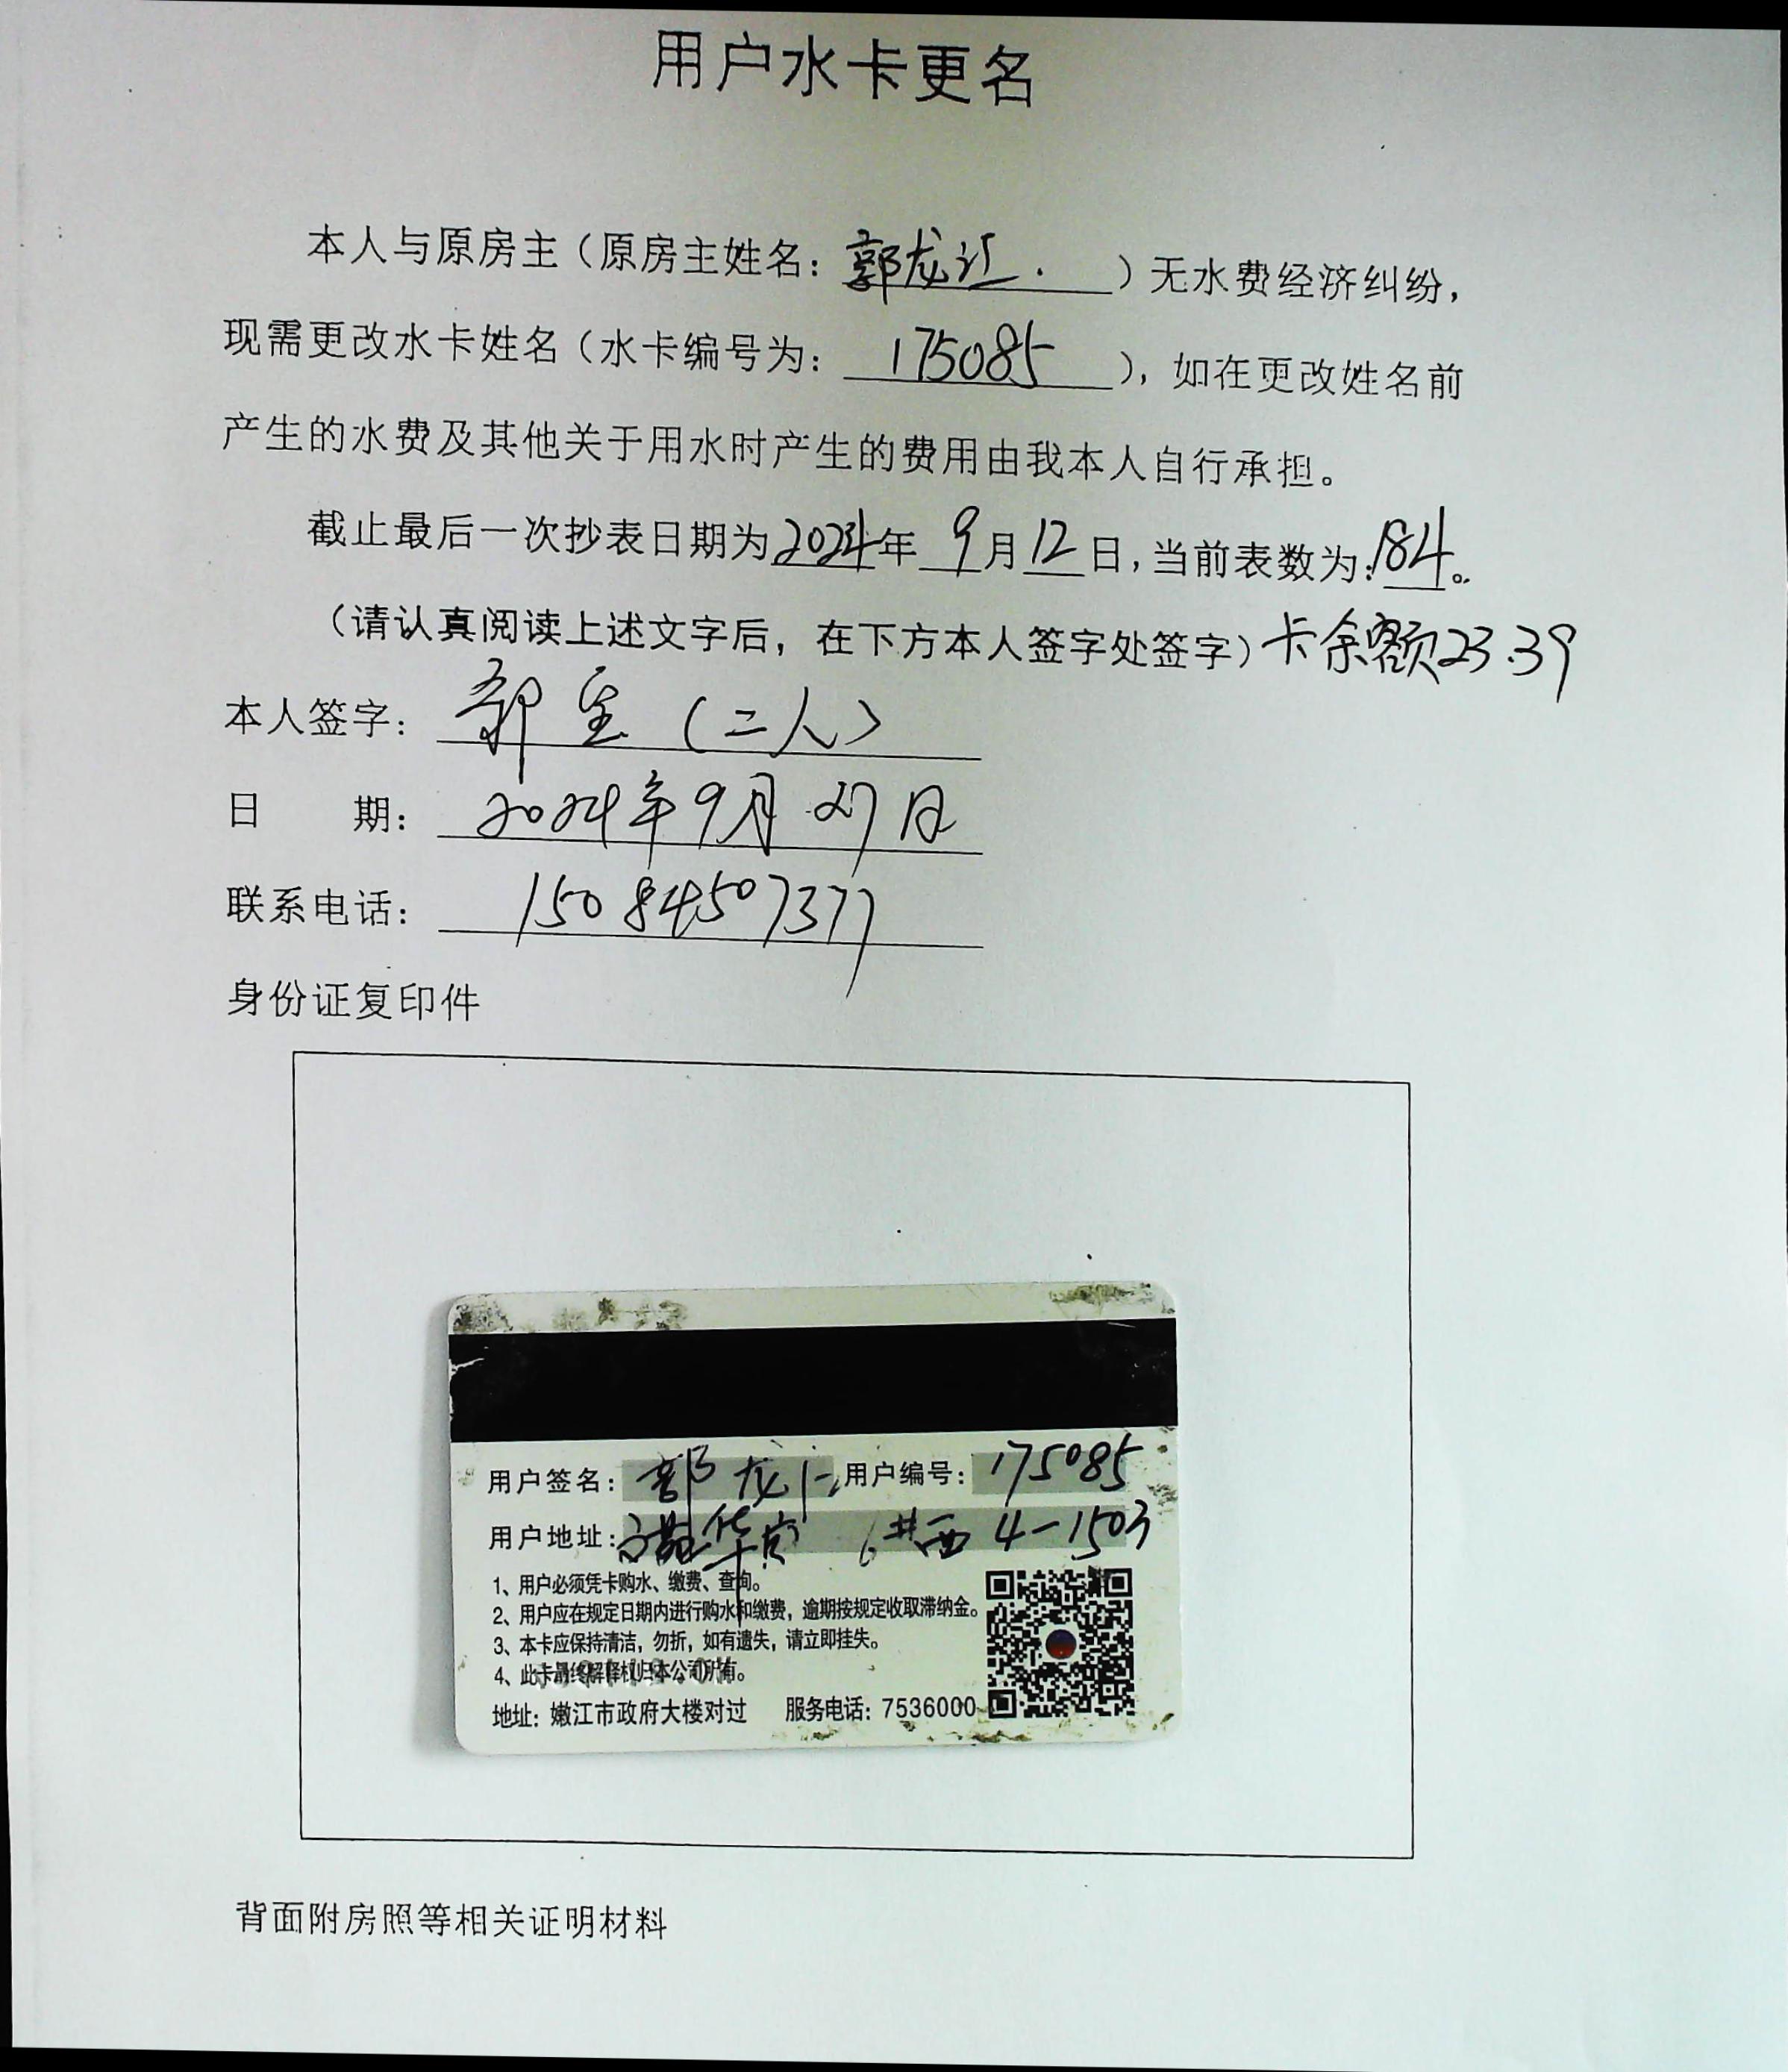 用户水卡更名
本人与原房主（原房主姓名：郭龙江）无水费经济纠纷，
现需更改水卡姓名（水卡编号为：175085），如在更改姓名前
产生的水费及其他关于用水时产生的费用由我本人自行承担。
截止最后一次抄表日期为2024年9月12日，当前表数为：184。
（请认真阅读上述文字后，在下方本人签字处签字）卡余额23.39
本人签字：郭宝（二人）
日 期：2024年9月27日
联系电话：15084507377
身份证复印件
用户签名：郭龙江 用户编号：175085
用户地址： 华府 6#西4-1503
1、用户必须凭卡购水、缴费、查询。
2、用户应在规定日期内进行购水和缴费，逾期按规定收取滞纳金。
3、本卡应保持清洁，勿折，如有遗失，请立即挂失。
4、此卡最终解释权归本公司所有。
地址：嫩江市政府大楼对过 服务电话：7536000
背面附房照等相关证明材料